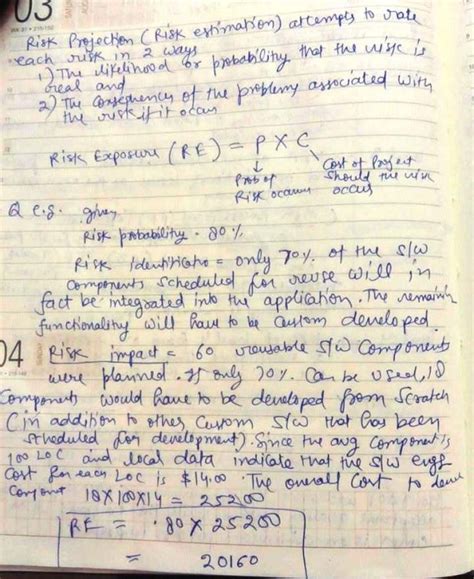 03
Risk Projection (Risk estimation) attempts to rate
each risk in 2 ways
1) The likelihood or probability that the risk is
real and
2) The consequences of the problems associated with
the risk if it occurs
Risk Exposure (RE) = P X C
Prob of
Risk occurs
Cost of Project
should the risk
occurs
Q e.g. given
Risk probability = 80%
Risk identification = only 70% of the S/W
components scheduled for reuse will in
fact be integrated into the application. The remainin
functionality will have to be custom developed.
04 Risk impact = 60 reusable S/W components
were planned. If only 70% can be used, 18
Components would have to be developed from scratch
(in addition to other custom S/W that has been
scheduled for development). Since the avg component is
100 LOC and local data indicate that the S/W engg
cost for each LOC is $14.00. The overall cost to
18X100X14 = 25200
RE = .80 X 25200
= 20160